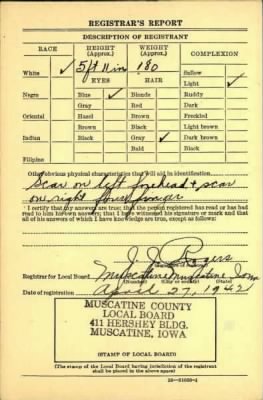 REGISTRAR'S REPORT
DESCRIPTION OF REGISTRANT
RACE HEIGHT (Approx.) WEIGHT (Approx.) COMPLEXION
White ✓ 5 ft 11 in 180 Sallow
EYES HAIR Light ✓
Negro Blue ✓ Blonde Ruddy
Gray Red Dark
Oriental Hazel Brown Freckled
Brown Black Light brown
Indian Black Gray ✓ Dark brown
Bald Black
Filipino
Other obvious physical characteristics that will aid in identification
Scar on left forehead & scar
on right finger
I certify that my answers are true; that the person registered has read or has had
read to him his own answers; that I have witnessed his signature or mark and that
all of his answers of which I have knowledge are true, except as follows:
J. J. Rogers
Registrar for Local Board Muscatine Muscatine Iowa
(Number) (City) (State)
Date of registration April 27, 1942
MUSCATINE COUNTY
LOCAL BOARD
411 HERSHEY BLDG.
MUSCATINE, IOWA
(STAMP OF LOCAL BOARD)
(The stamp of the Local Board having jurisdiction of the registrant
shall be placed in the above space)